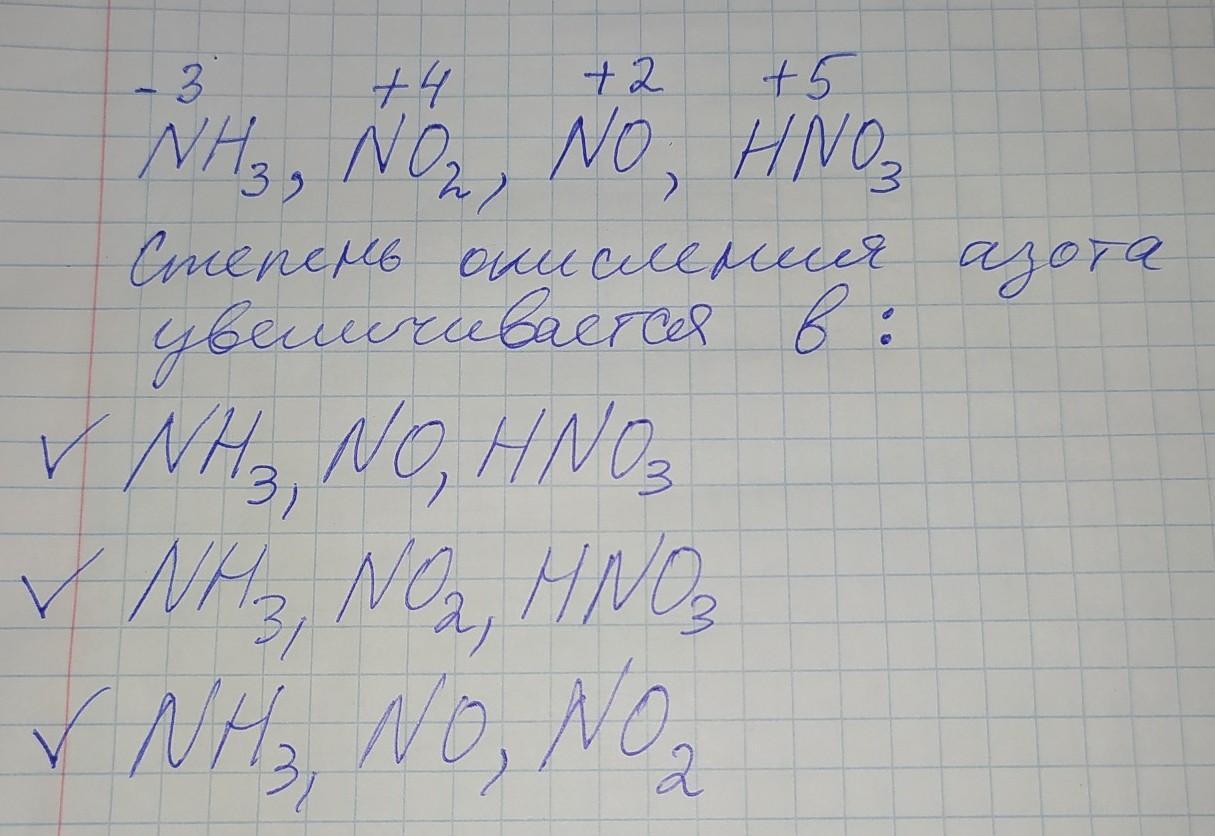 -3 +4 +2 +5
NH₃, NO₂, NO, HNO₃
Степень окисления азота
увеличивается в :
✓ NH₃, NO, HNO₃
✓ NH₃, NO₂, HNO₃
✓ NH₃, NO, NO₂